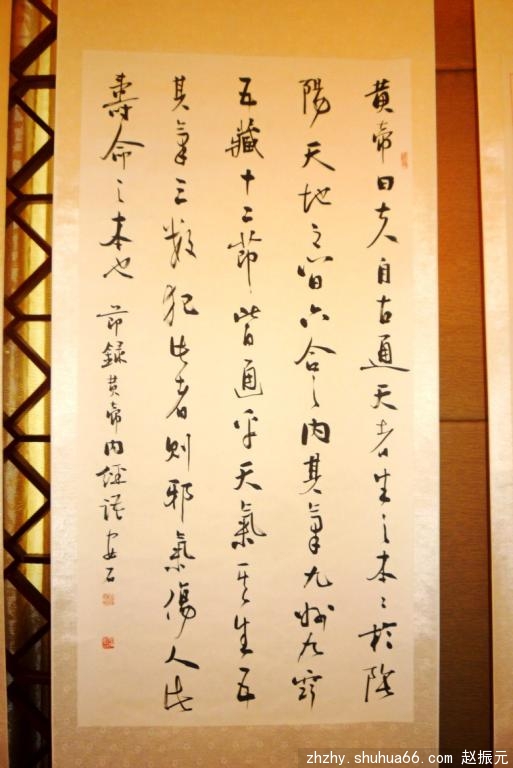 黄帝曰夫自古通天者生之本本於陰
陽天地之間六合之内其氣九州九竅
五藏十二節皆通乎天氣其生五
其氣三數犯此者則邪氣傷人此
壽命之本也
節録黄帝内經語 安石
zhzhy.shuhua66.com 赵振元